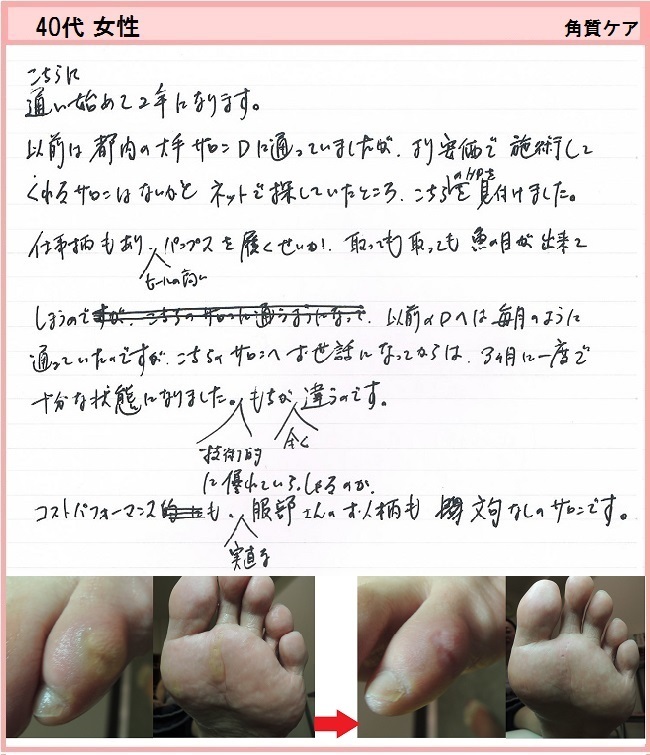 40代 女性
角質ケア
こちらに
通い始めて2年になります。
以前は都内の大手サロンDに通っていましたが、より安価で施術して
くれるサロンはないかと ネットで探していたところ、こちらのHPを見付けました。
仕事柄もあり、ヒールの高いパンプスを履くせいか、取っても取っても魚の目が出来て
しまうのですが、こちらのサロンに通うようになって、以前のDへは毎月のように
通っていたのですが、こちらのサロンへお世話になってからは、3ヶ月に一度で
十分な状態になりました。もちが違うのです。
技術的
全く
に優れていらっしゃるのか、
コストパフォーマンス的にも、服部さんのお人柄も 文句なしのサロンです。
実直な